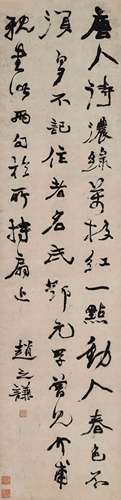 唐人詩濃綠萬枝紅一點動人春色不
須多不記作者名氏鄧元孚曾見介甫
親書此兩句於所持扇上
趙之謙